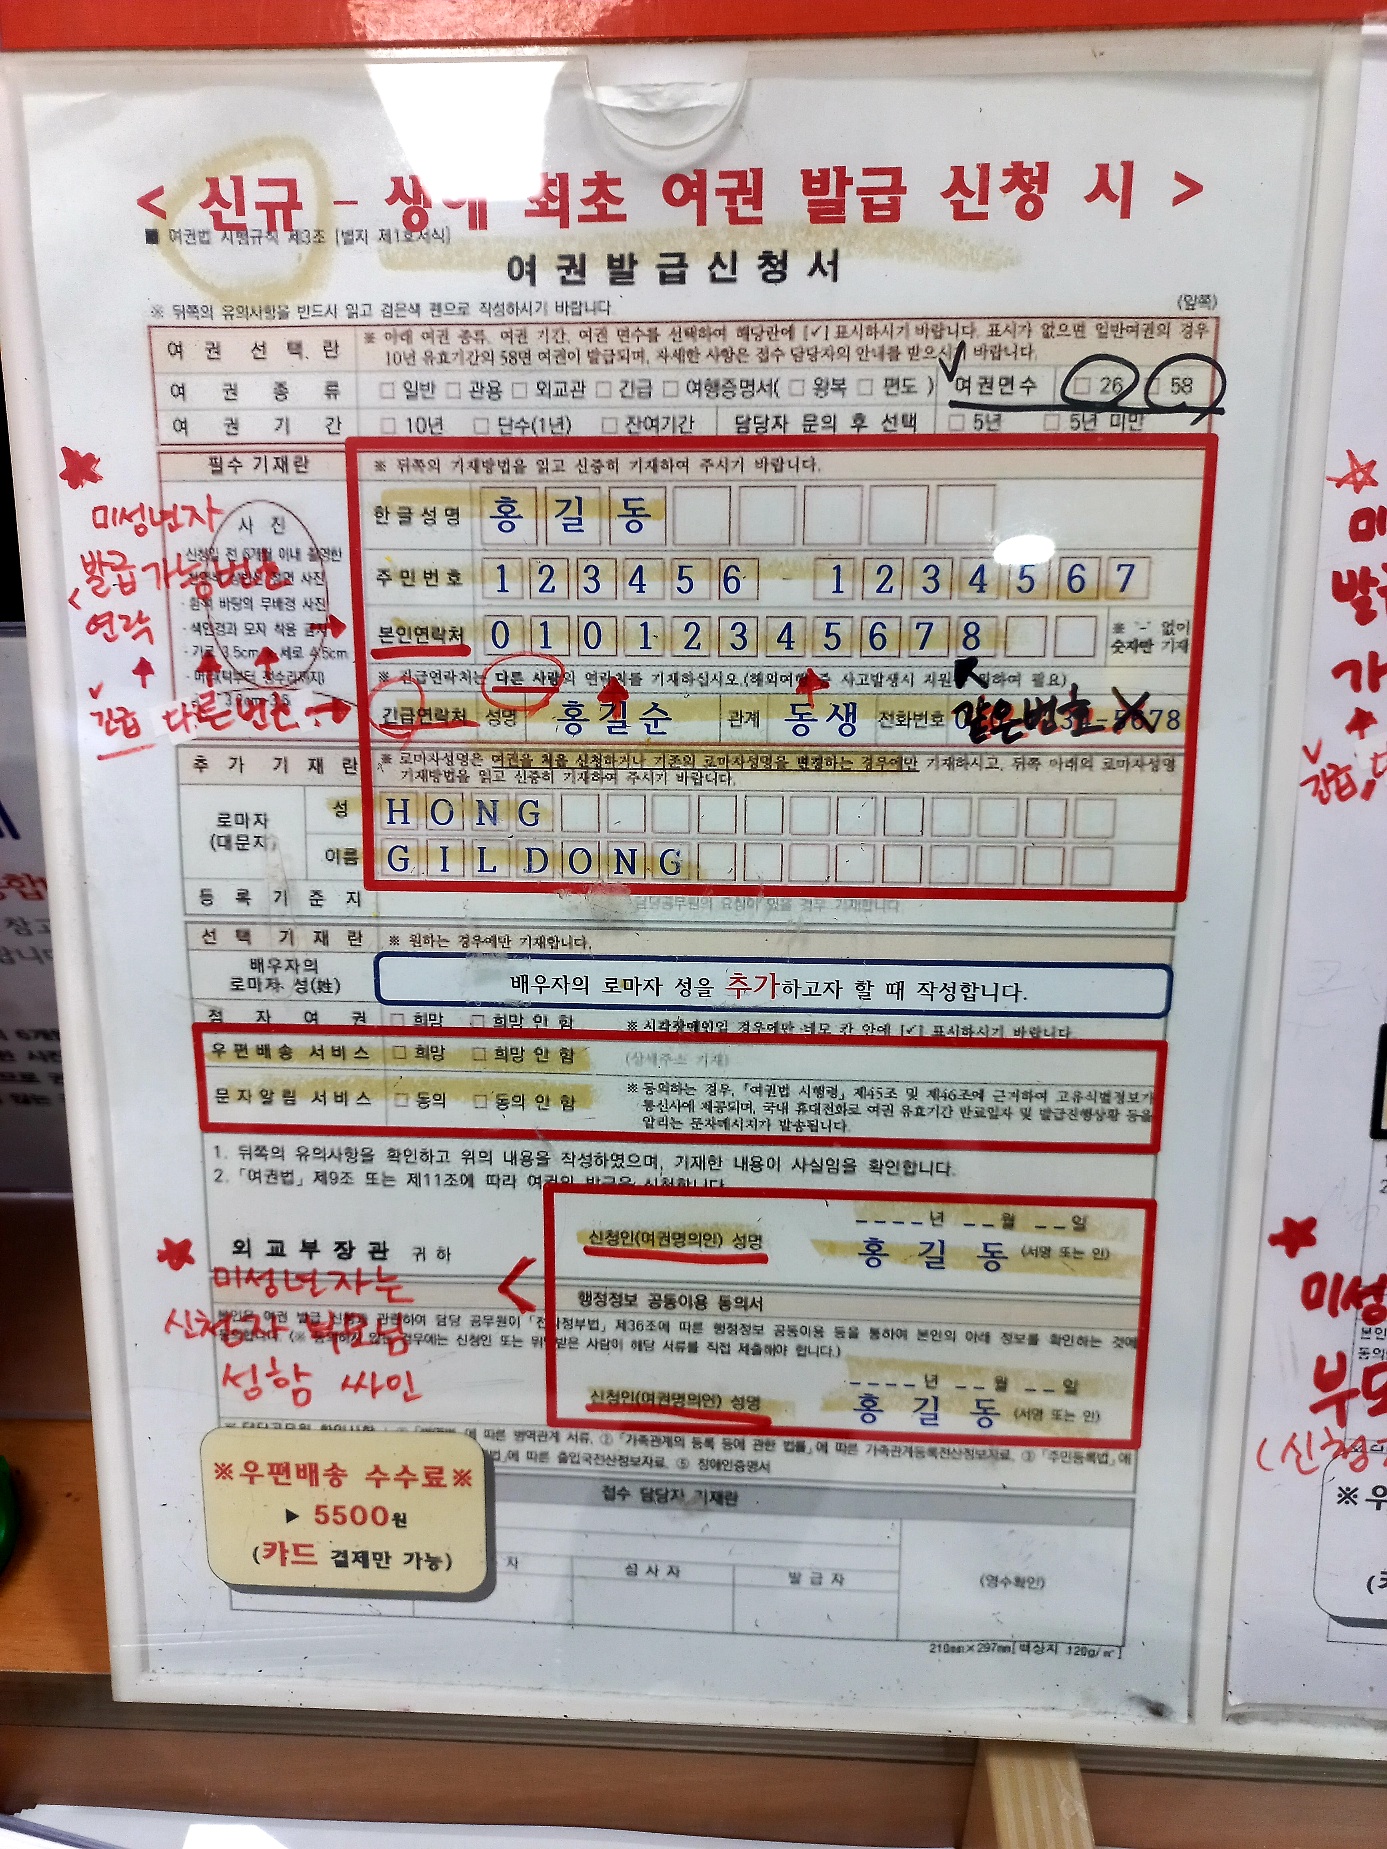 < 신규 - 생애 최초 여권 발급 신청 시 >
■ 여권법 시행규칙 제3조 [별지 제1호서식]
여권발급신청서
※ 뒤쪽의 유의사항을 반드시 읽고 검은색 펜으로 작성하시기 바랍니다. (앞쪽)
여권선택란 ※ 아래 여권 종류, 여권 기간, 여권 면수를 선택하여 해당란에 [✓] 표시하시기 바랍니다. 표시가 없으면 일반여권의 경우
10년 유효기간의 58면 여권이 발급되며, 자세한 사항은 접수 담당자의 안내를 받으시기 바랍니다.
여권종류 □ 일반 □ 관용 □ 외교관 □ 긴급 □ 여행증명서( □ 왕복 □ 편도 ) ✓ 여권면수 □ 26 □ 58
여권기간 □ 10년 □ 단수(1년) □ 잔여기간 담당자 문의 후 선택 □ 5년 □ 5년 미만
필수기재란 ※ 뒤쪽의 기재방법을 읽고 신중히 기재하여 주시기 바랍니다.
★
미성년자
발급 가능
연락
긴급 다른번호 →
사 진
신청일 전 6개월 이내 촬영한
바탕의 무배경 사진
· 색안경과 모자 착용 금지
3.5cm 세로 4.5cm
한글성명 홍 길 동
주민번호 1 2 3 4 5 6 - 1 2 3 4 5 6 7
본인연락처 0 1 0 1 2 3 4 5 6 7 8 ※ '-' 없이
숫자만 기재
※ 긴급연락처는 다른 사람의 연락처를 기재하십시오.(해외여행 중 사고발생시 지원 위하여 필요)
긴급연락처 성명 홍길순 관계 동생 전화번호 5678
같은번호 X
추가기재란 ※ 로마자성명은 여권을 처음 신청하거나 기존의 로마자성명을 변경하는 경우에만 기재하시고, 뒤쪽 아래의 로마자성명
기재방법을 읽고 신중히 기재하여 주시기 바랍니다.
로마자
(대문자)
성 H O N G
이름 G I L D O N G
등록기준지 담당공무원의 요청이 있을 경우 기재합니다.
선택기재란 ※ 원하는 경우에만 기재합니다.
배우자의
로마자 성(姓)
배우자의 로마자 성을 추가하고자 할 때 작성합니다.
점자여권 □ 희망 □ 희망 안 함 ※ 시각장애인일 경우에만 네모 칸 안에 [✓] 표시하시기 바랍니다.
우편배송 서비스 □ 희망 □ 희망 안 함 (상세주소 기재)
문자알림 서비스 □ 동의 □ 동의 안 함 ※ 동의하는 경우, 「여권법 시행령」 제45조 및 제46조에 근거하여 고유식별정보가
통신사에 제공되며, 국내 휴대전화로 여권 유효기간 만료일자 및 발급진행상황 등을
알리는 문자메시지가 발송됩니다.
1. 뒤쪽의 유의사항을 확인하고 위의 내용을 작성하였으며, 기재한 내용이 사실임을 확인합니다.
2. 「여권법」 제9조 또는 제11조에 따라 여권의 발급을 신청합니다.
____년 __월 __일
신청인(여권명의인) 성명 홍 길 동 (서명 또는 인)
외교부장관 귀하
★ 미성년자는
신청자 부모님
성함 싸인
<
행정정보 공동이용 동의서
본인은 여권 발급 신청과 관련하여 담당 공무원이 「전자정부법」 제36조에 따른 행정정보 공동이용 등을 통하여 본인의 아래 정보를 확인하는 것에
동의합니다. (※ 동의하지 않는 경우에는 신청인 또는 위임받은 사람이 해당 서류를 직접 제출해야 합니다.)
____년 __월 __일
신청인(여권명의인) 성명 홍 길 동 (서명 또는 인)
에 따른 병역관계 서류, ② 「가족관계의 등록 등에 관한 법률」에 따른 가족관계등록전산정보자료, ③ 「주민등록법」에
법」에 따른 출입국전산정보자료, ⑤ 장애인증명서
※우편배송 수수료※
▶ 5500원
(카드 결제만 가능)
접수 담당자 기재란
심사자 발급자 (영수확인)
210mm×297mm[백상지 120g/㎡]